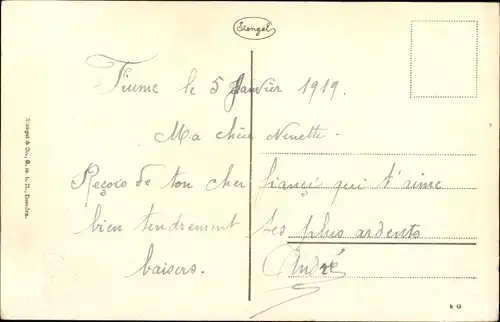 Stengel
Fiume le 5 Janvier 1919.
Ma chère Nenette.
Reçois de ton cher fiancé qui t'aime
bien tendrement tes plus ardents
baisers. André
Stengel & Co., G. m. b. H., Dresden.